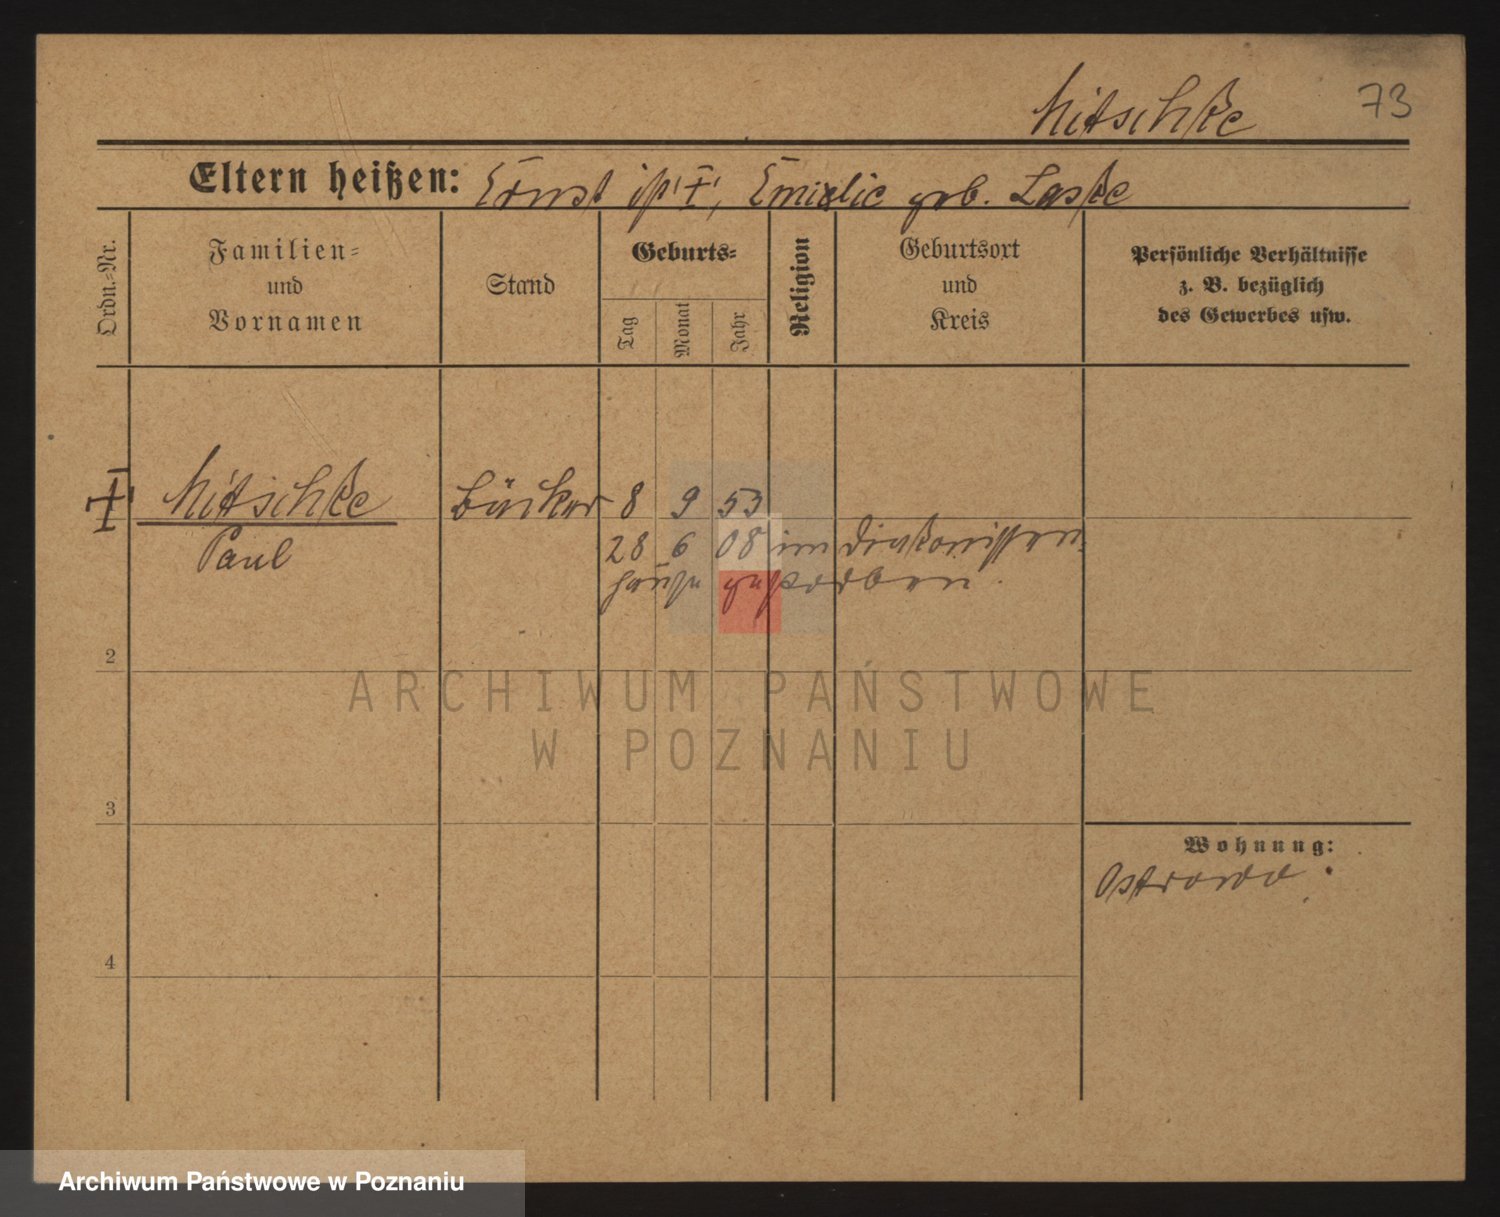 Nitschke 73
Eltern heißen: Ernst ist ‡, Emilie geb. Laske
Ordn.-Nr.
Familien-
und
Vornamen
Stand
Geburts-
Tag
Monat
Jahr
Religion
Geburtsort
und
Kreis
Persönliche Verhältnisse
z. B. bezüglich
des Gewerbes usw.
‡ Nitschke Bäcker 8 9 53
Paul 28 6 08 im Diakonissen-
hause gestorben.
2
ARCHIWUM PAŃSTWOWE
W POZNANIU
3
Wohnung:
Ostrowo.
4
Archiwum Państwowe w Poznaniu